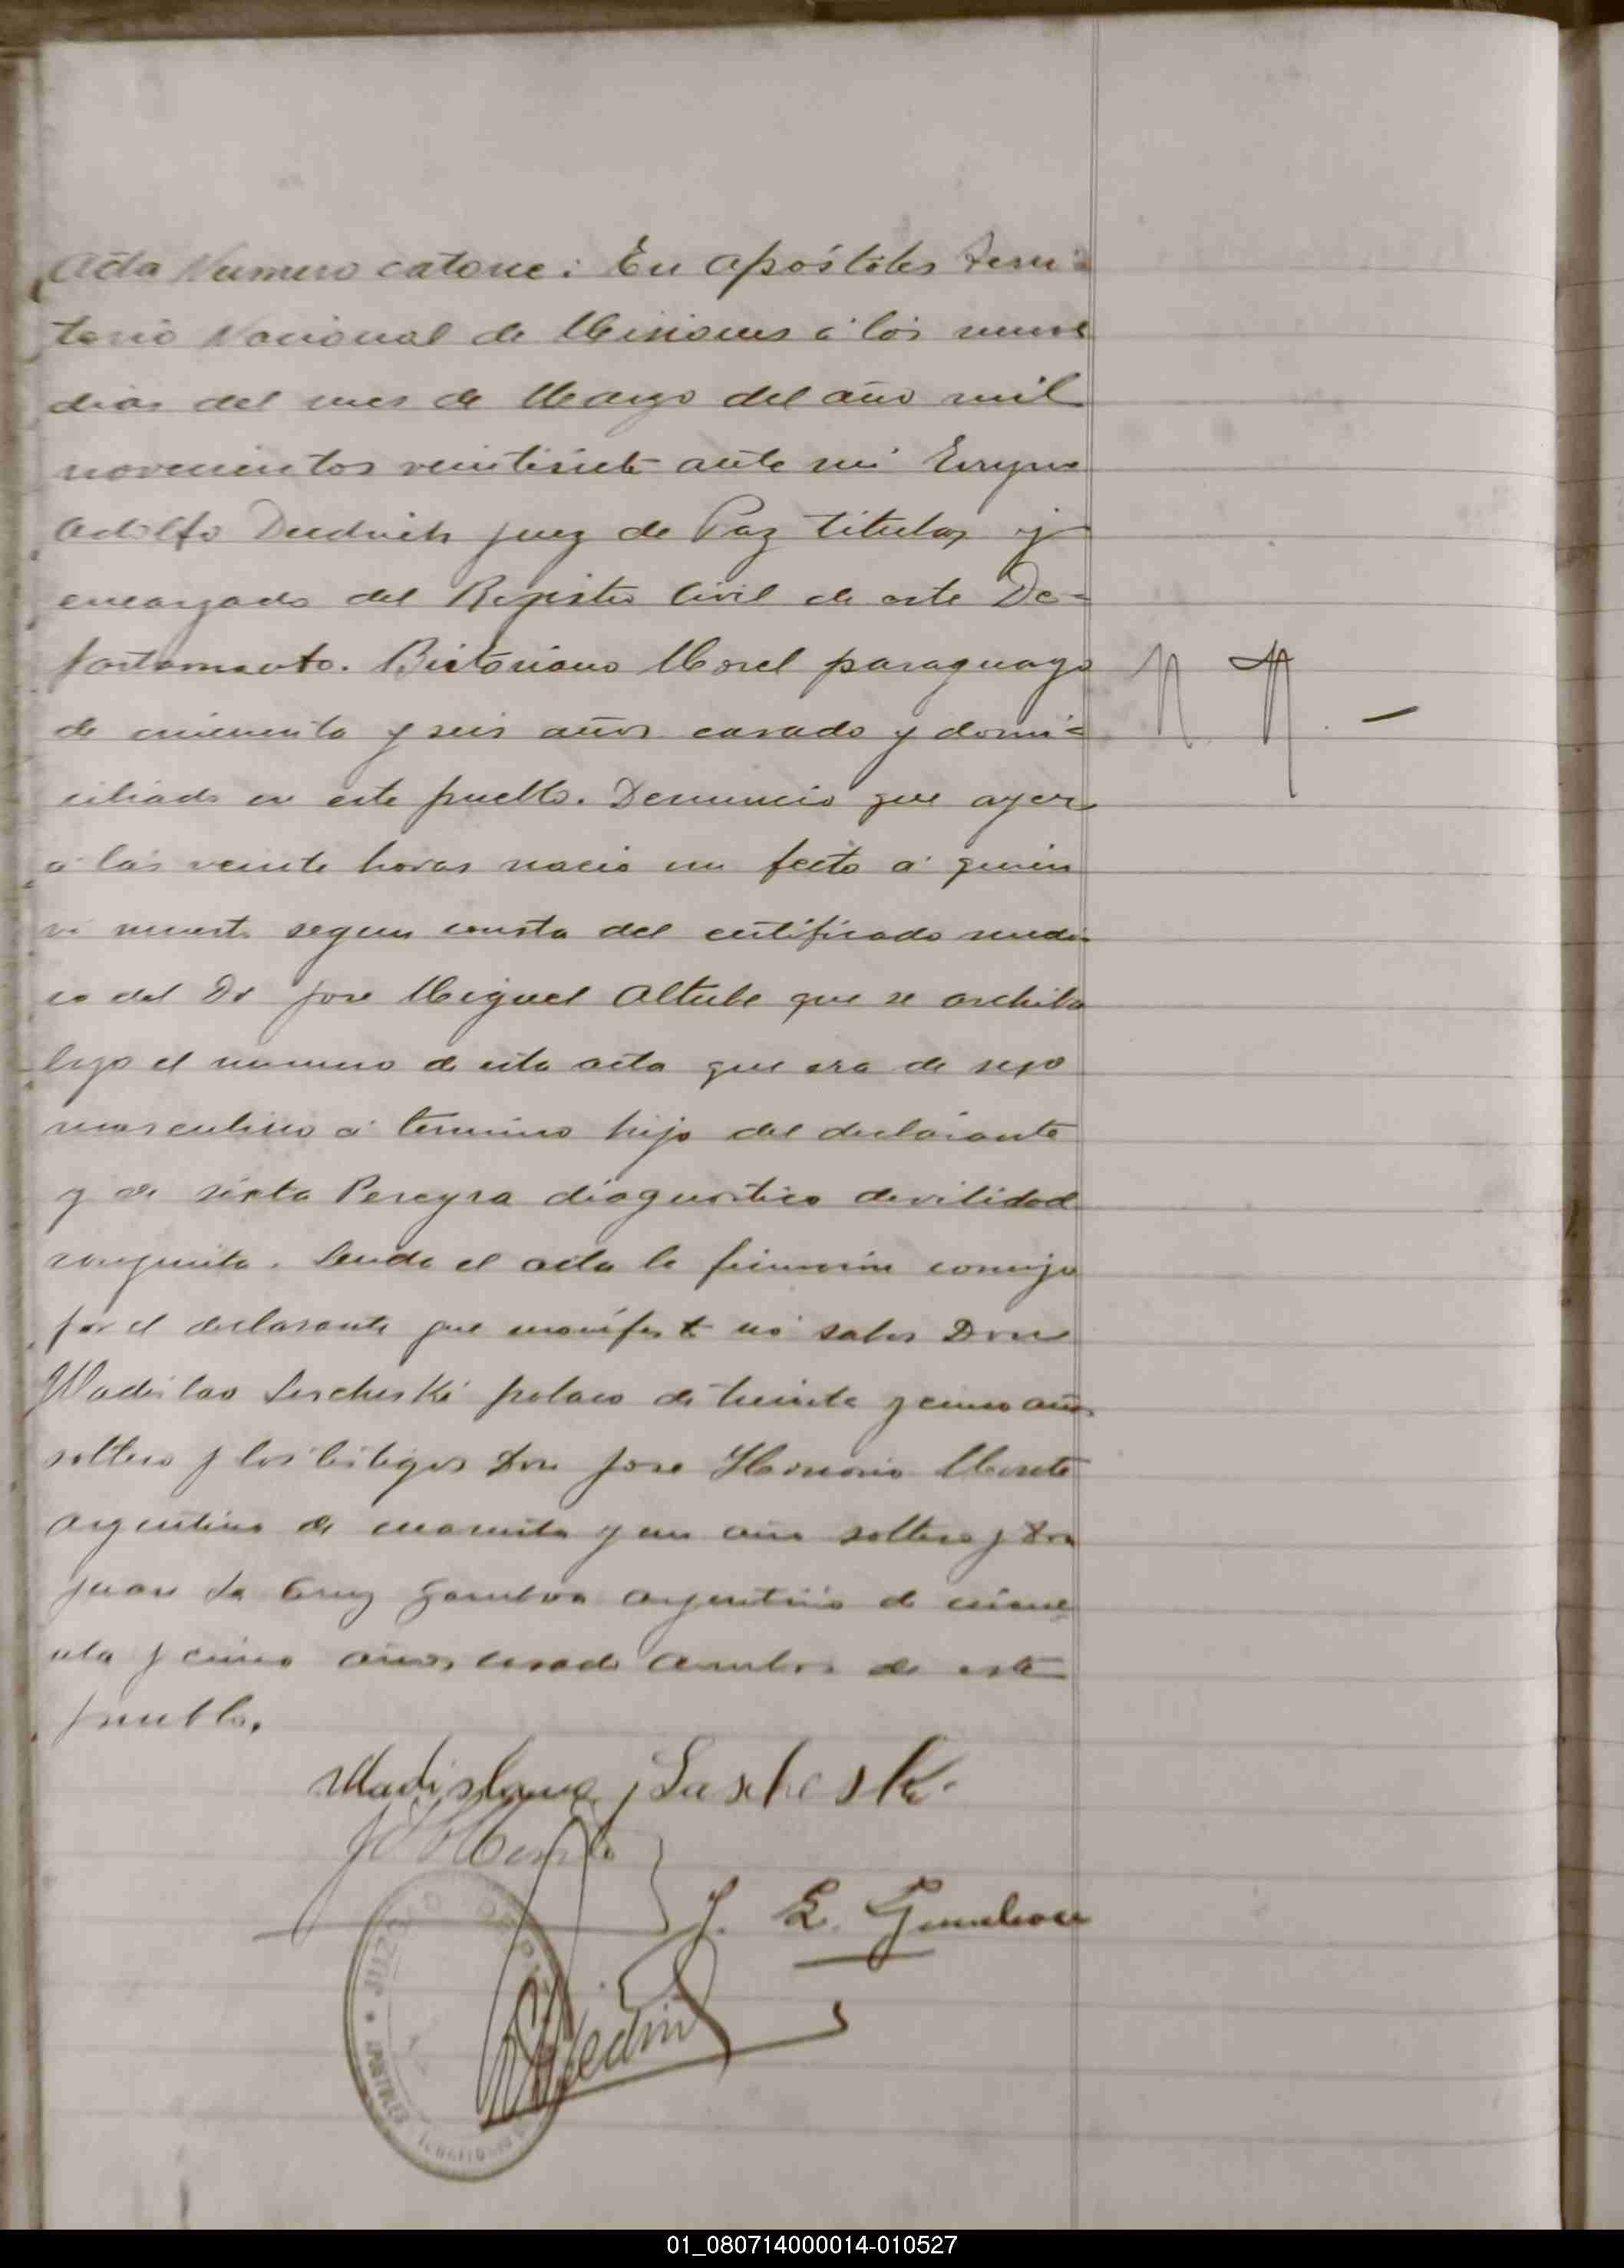 Acta Numero catorce: En Apóstoles Terri=
torio Nacional de Misiones á los nueve
dias del mes de Marzo del año mil
novecientos veintisiete ante mi Enrique
Adolfo Juez de Paz titular y
encargado del Registro Civil de este De=
partamento. Bictoriano Morel paraguayo
de cincuenta y seis años casado y domi=
ciliado en este pueblo. Denuncio que ayer
a las veinte horas nacio un feto a quien
vi muerto segun consta del certificado medi
co del Dr Jose Miguel Altube que se archiba
bajo el numero de esta acta que era de sexo
masculino á termino hijo del declarante
y de Sixta Pereyra diagnostico devilidad
congenita. Leida el acta la firmaron conmigo
por el declarante que manifestó no saber Don
Wadislao polaco de treinta y cinco años
soltero y los testigos Don Jose Honorio
argentino de cuarenta y un año soltero y Don
Juan de la Cruz Gamboa argentino de cincue
nta y cinco años casado ambos de este
pueblo.
N N. —
J. L. Gamboa
JUZGADO DE PAZ
APOSTOLES
01_080714000014-010527